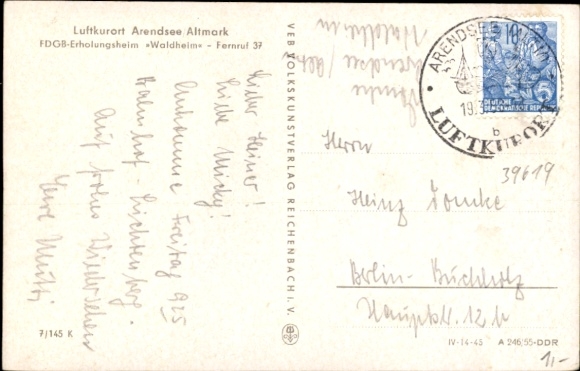 Luftkurort Arendsee/Altmark
FDGB-Erholungsheim »Waldheim« - Fernruf 37
Lieber Heiner!
Liebe Micky!
Ankomme Freitag 9.25
Bahnhof - Lichtenberg.
Auf frohes Wiedersehen
Eure Mutti
7/145 K
VEB VOLKSKUNSTVERLAG REICHENBACH I. V.
Arendsee / Alt
Waldheim
ARENDSEE
19.
b
LUFTKURORT
10
5
DEUTSCHE
DEMOKRATISCHE REPUBLIK
39619
Herrn
Heinz
Berlin-Buchholz
Hauptstr. 12 b
IV-14-45 A 246/55-DDR
1,-